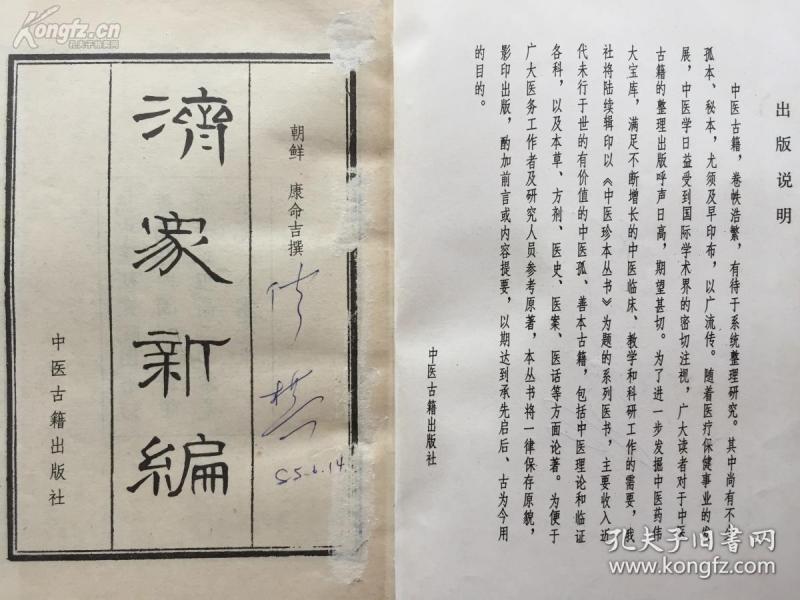 朝鲜 康命吉撰
濟衆新編
中医古籍出版社
出版说明
中医古籍，卷帙浩繁，有待于系统整理研究。其中尚有不少
孤本、秘本，尤须及早印布，以广流传。随着医疗保健事业的发
展，中医学日益受到国际学术界的密切注视，广大读者对于中医
古籍的整理出版呼声日高，期望甚切。为了进一步发掘中医药伟
大宝库，满足不断增长的中医临床、教学和科研工作的需要，我
社将陆续辑印以《中医珍本丛书》为题的系列医书，主要收入近
代未行于世的有价值的中医孤、善本古籍，包括中医理论和临证
各科，以及本草、方剂、医史、医案、医话等方面论著。为便于
广大医务工作者及研究人员参考原著，本丛书将一律保存原貌，
影印出版，酌加前言或内容提要，以期达到承先启后、古为今用
的目的。
中医古籍出版社
Kongfz.com
孔夫子旧书网
孔夫子旧书网
www.kongfz.com